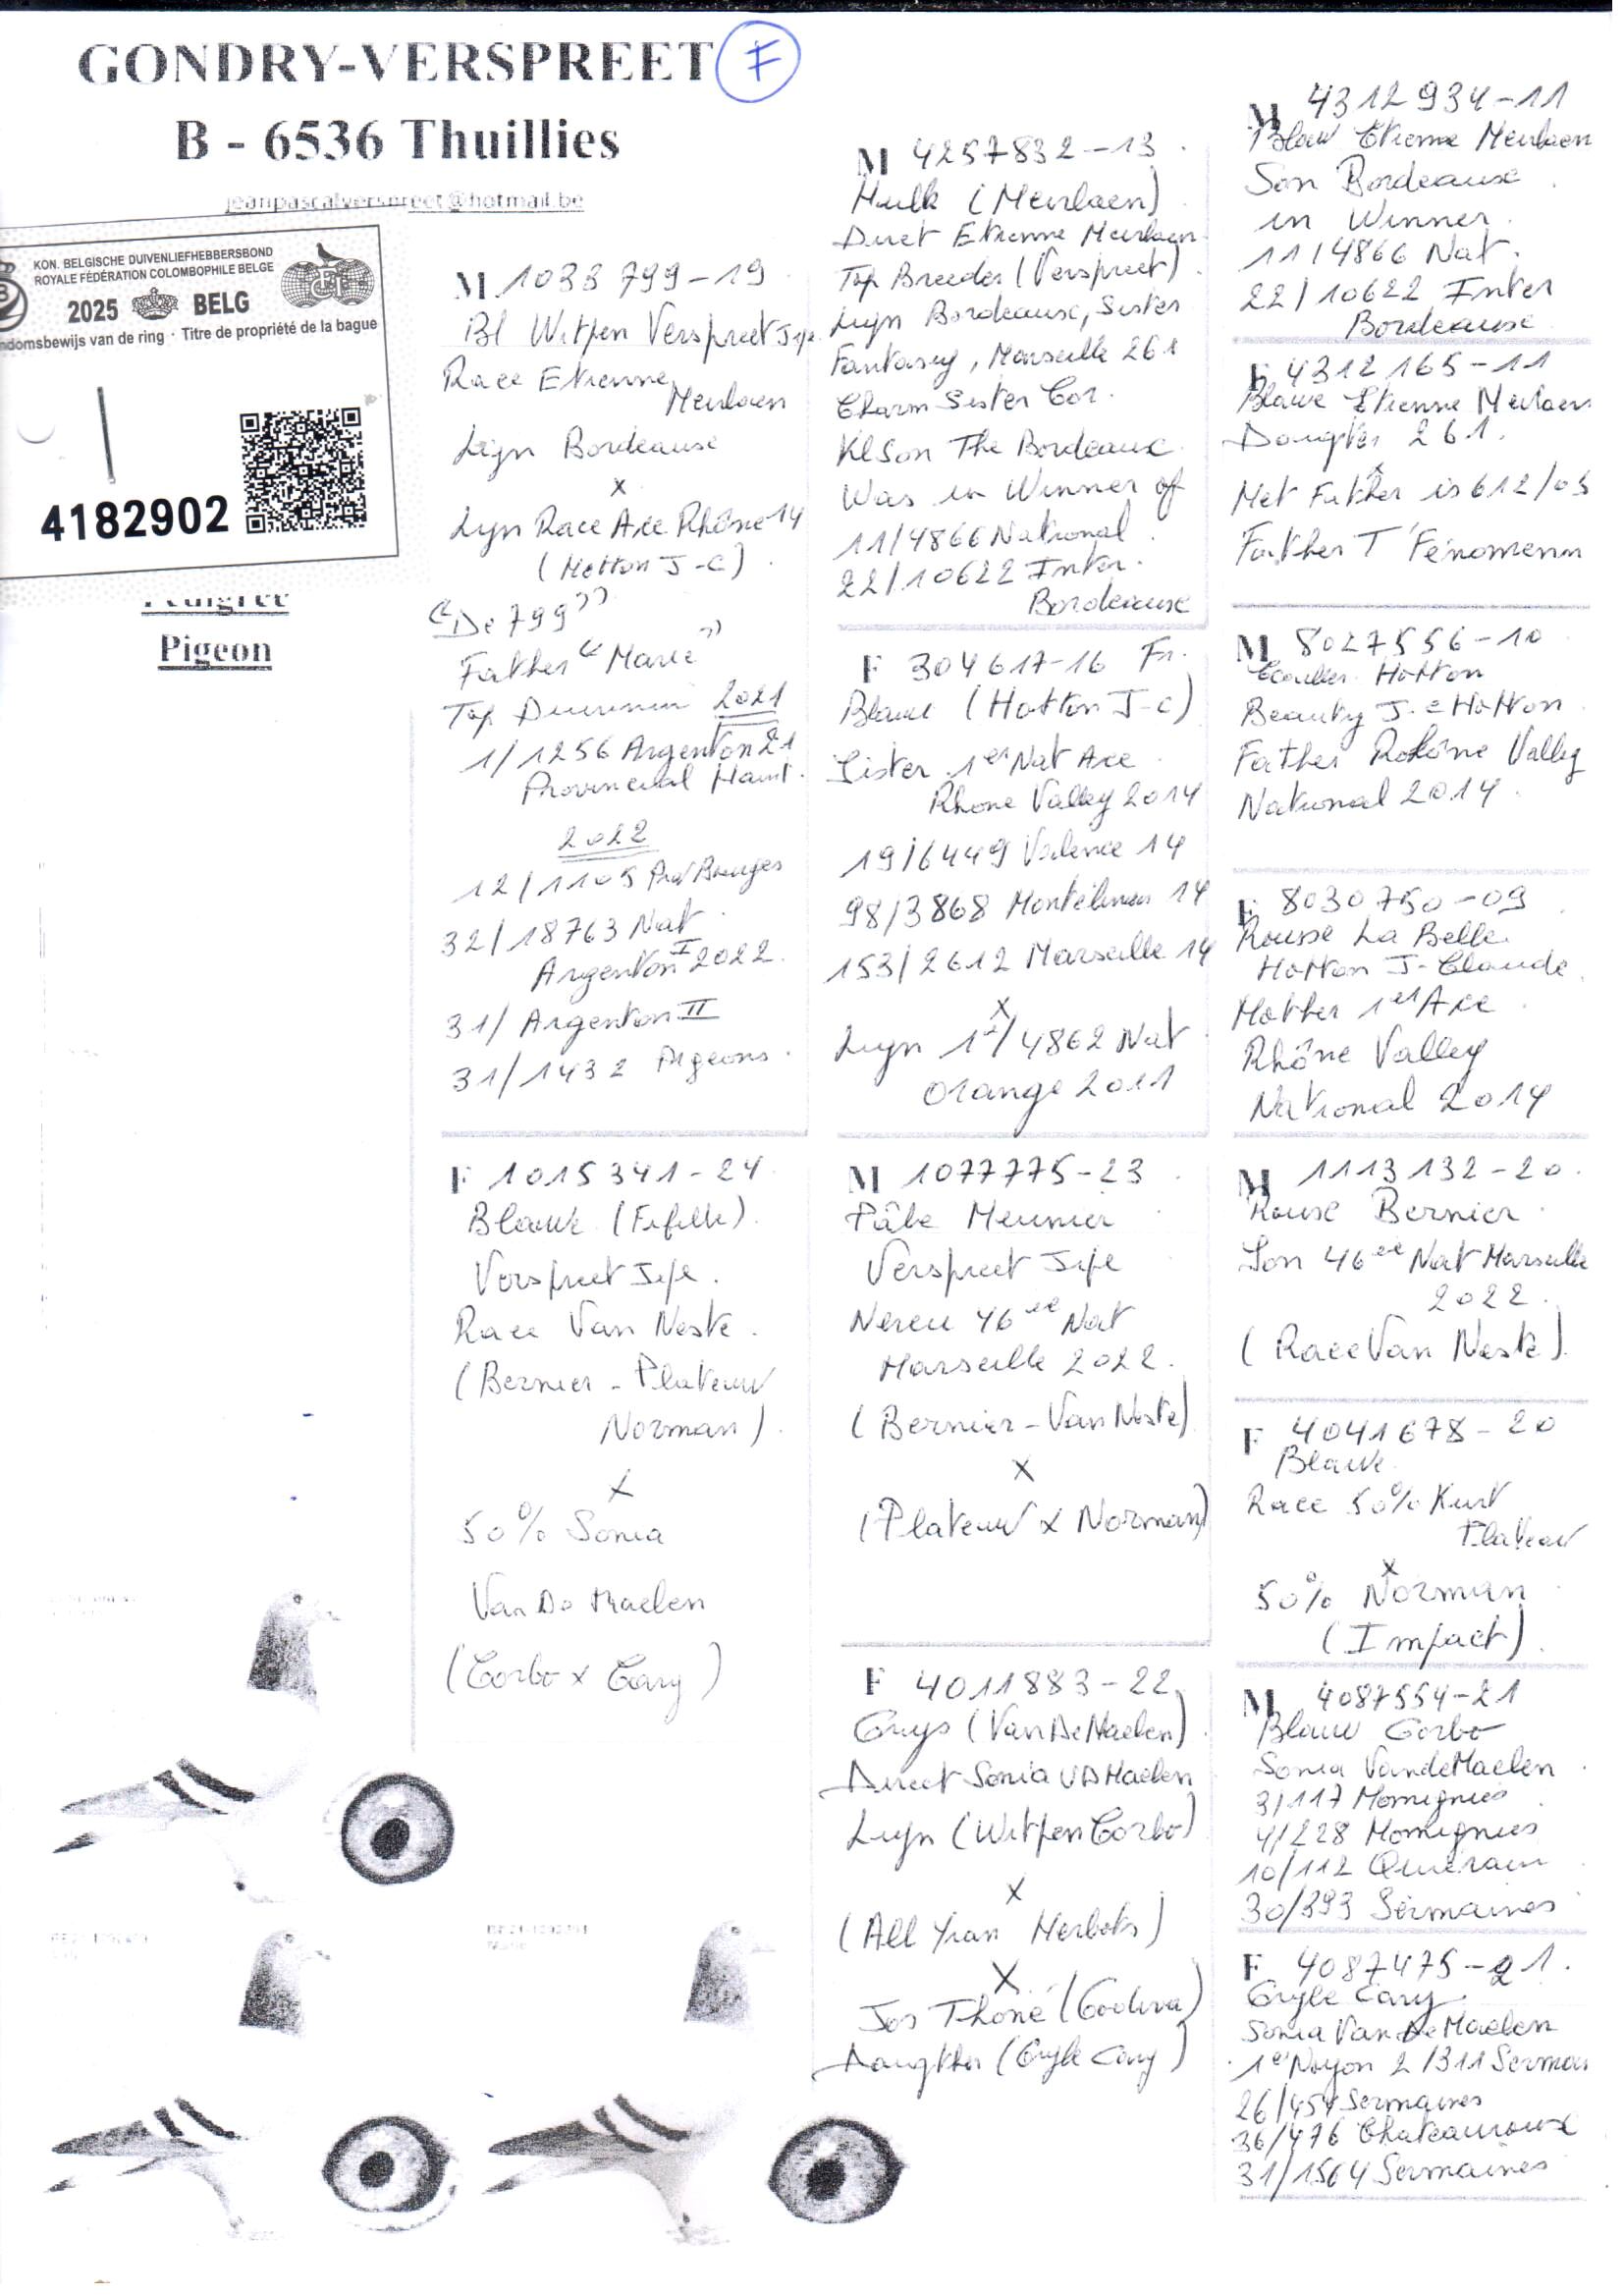 GONDRY-VERSPREET F
B - 6536 Thuillies
jeanpascalverspreet@hotmail.be
KON. BELGISCHE DUIVENLIEFHEBBERSBOND
ROYALE FÉDÉRATION COLOMBOPHILE BELGE
2025 BELG
ndomsbewijs van de ring · Titre de propriété de la bague
4182902
Pedigree
Pigeon
M 1033799-19
Bl Witpen Verspreet Jipe
Race Etienne
Meulaen
Lijn Bordeause
x
Lijn Race Ace Rhône 14
(Hotton J-C)
"De 799"
Father "Marie"
Top Duivinin 2021
1/1256 Argenton 21
Provincial Hain.
2022
12/1105 Prov Bourges
32/18763 Nat
Argenton I 2022.
31/ Argenton II
31/1432 Pigeons.
F 1015341-24
Blauw (Fifille)
Verspreet Jipe.
Race Van Neste.
(Bernier - Plateauw
Norman)
x
50% Sonia
Van De Maelen
(Corbo x Cary)
M 4257832-13
Hulk (Meulaen)
Direct Etienne Meulaen
Top Breeder (Verspreet)
Lijn Bordeause, Sister
Fantasy, Marseille 261
Charm Sister Cor.
Kl Son The Bordeaux
Was in Winner of
11/4866 National
22/10622 Inter.
Bordeause
F 304617-16 Fr.
Blauw (Hotton J-C)
Sister 1er Nat Ace
Rhone Valley 2014
19/6449 Valence 14
98/3868 Montélimar 14
153/2612 Marseille 14
x
Lijn 1er/4862 Nat
Orange 2011
M 1077775-23
Pâle Meunier
Verspreet Jipe
Neveu 46ee Nat
Marseille 2022.
(Bernier-Van Neste)
x
(Plateauw x Norman)
F 4011883-22
Gruys (Van De Maelen)
Direct Sonia VD Maelen
Lijn (Witpen Corbo)
x
(All Yvan Herbots)
x
Jos Thoné (Godiva)
Daughter (Gryle Cary)
M 4312934-11
Blauw Etienne Meulaen
Son Bordeause
in Winner.
11/4866 Nat.
22/10622 Inter
Bordeause
F 4312165-11
Blauwe Etienne Meulaen
Daughter 261.
Met Father is 612/03
Father T' Fenomenn
M 8027556-10
Ecailles Hotton
Beauty J-C Hotton
Father Rhône Valley
National 2014.
F 8030750-09
Rousse La Belle
Hotton J-Claude
Mother 1er Ace
Rhône Valley
National 2014
M 1113132-20.
Rouse Bernier
Son 46ee Nat Marseille
2022.
(Race Van Neste)
F 4041678-20
Blauwe
Race 50% Kurt
Plateauw
x
50% Norman
(Impact)
M 4087554-21
Blauw Corbo
Sonia VandeMaelen
3/117 Momignies
4/228 Momignies
10/112 Quiévrain
30/393 Sermaises
F 4087475-21.
Gryle Cary
Sonia Van De Maelen
1er Noyon 2/311 Sermais
26/454 Sermaises
36/476 Chateauroux
31/1564 Sermaises